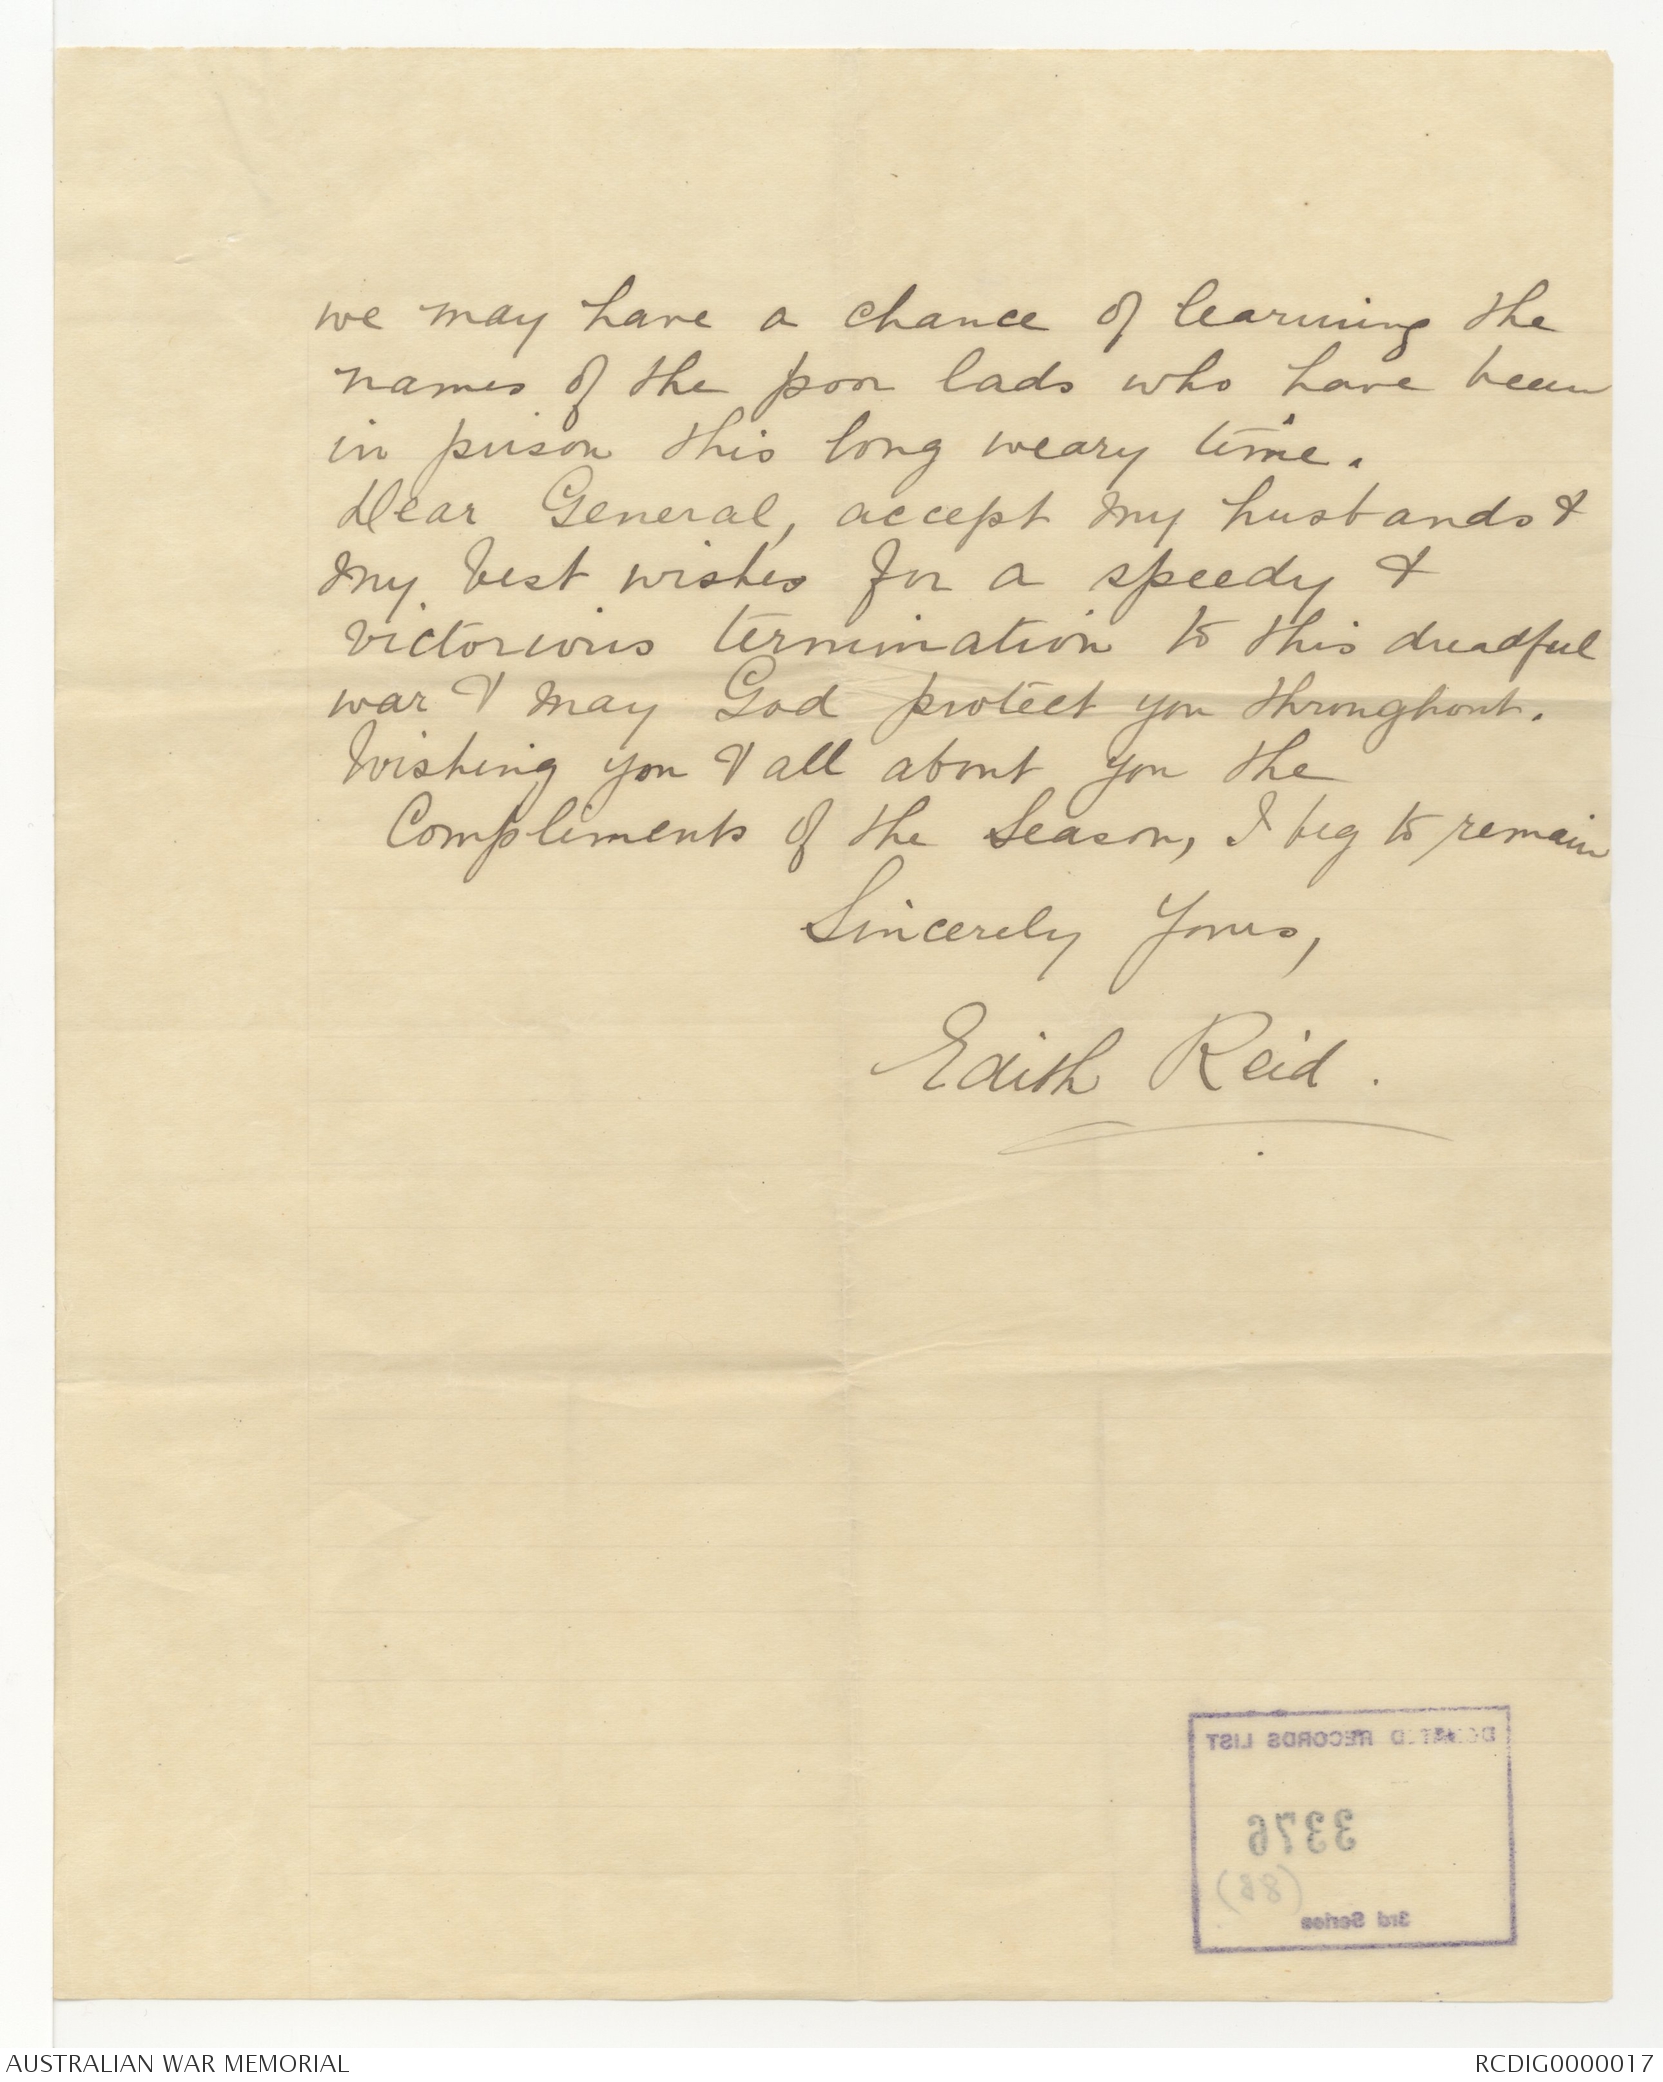 we may have a chance of learning the
names of the poor lads who have been
in prison this long weary time.
Dear General, accept my husbands &
my best wishes for a speedy &
victorious termination to this dreadful
war & may God protect you throughout.
Wishing you & all about you the
Compliments of the Season, I beg to remain
Sincerely Yours,
Edith Reid.
DONATED RECORDS LIST
3376
(88)
3rd Series
AUSTRALIAN WAR MEMORIAL
RCDIG0000017